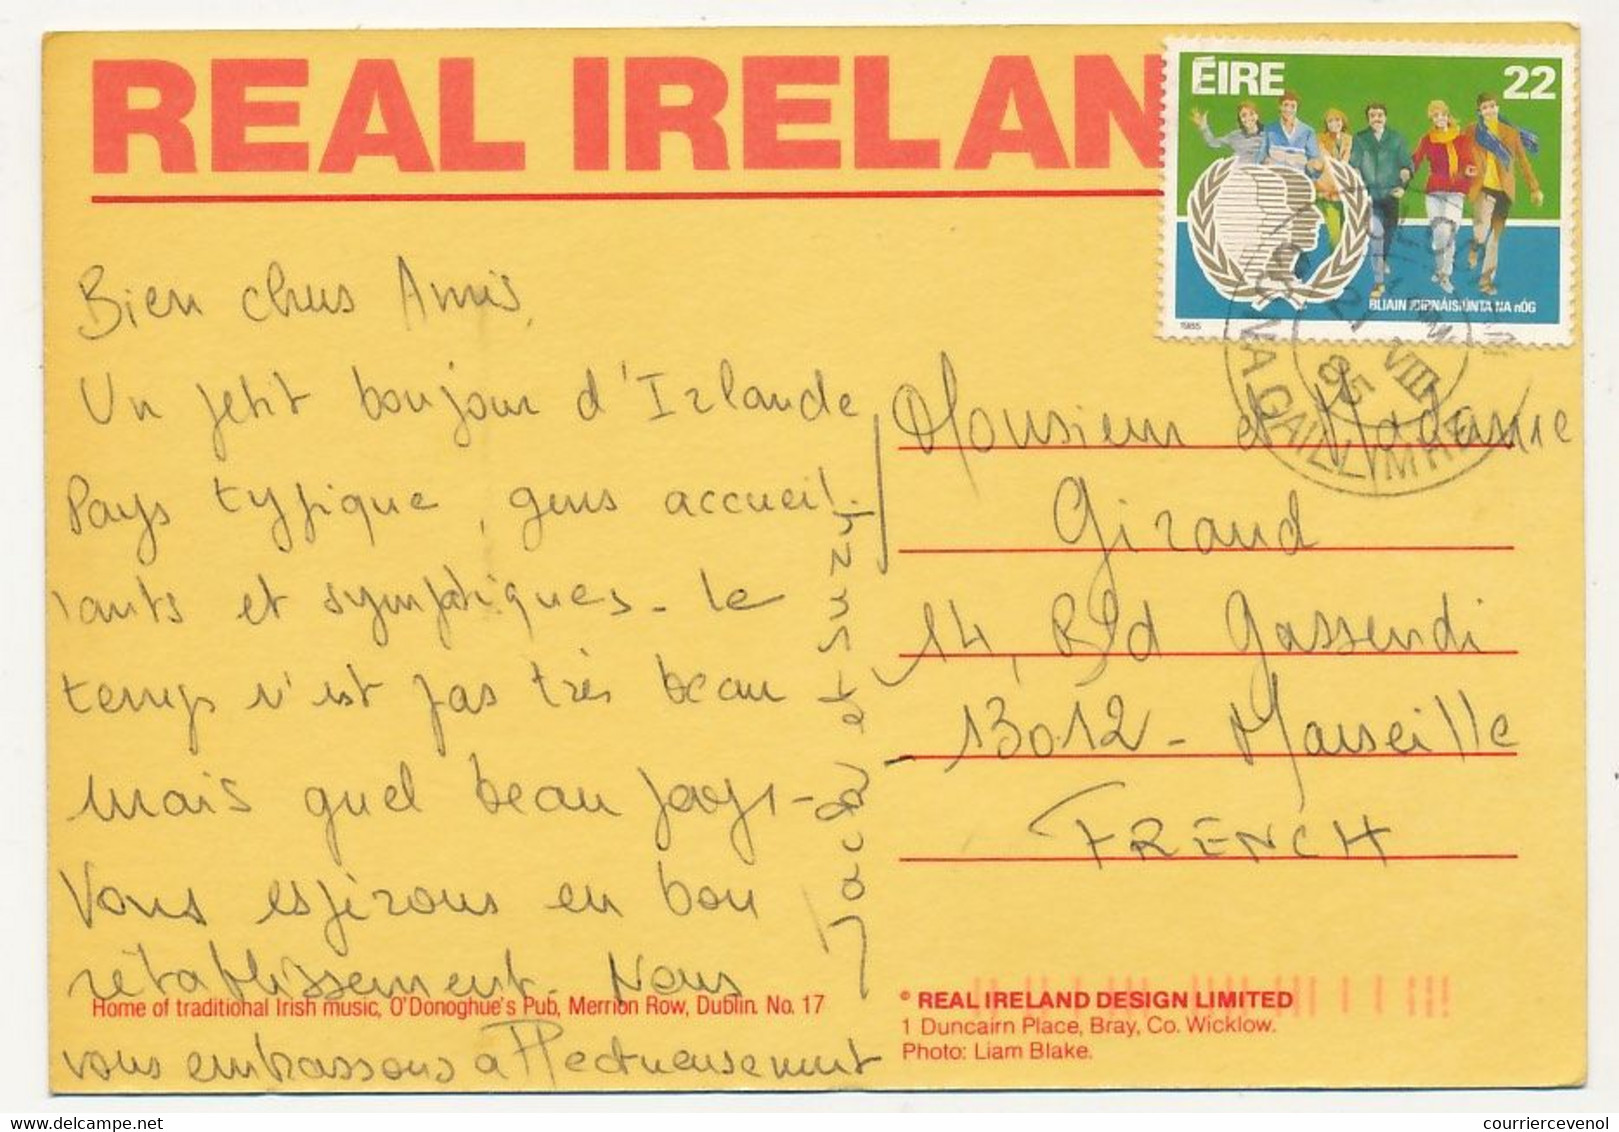 REAL IRELAN
ÉIRE 22
BLIAIN IDIRNÁISIÚNTA NA nÓG
1985
21 VIII
85
NA GAILLIMHE
Bien chers Amis,
Un petit bonjour d'Irlande
Pays typique, gens accueil-
lants et sympatiques - Le
temps n'est pas très beau
mais quel beau pays -
Vous espérons en bon
rétablissement. Nous
vous embrassons affectueusement
Jacky et Suzy
Monsieur et Madame
Giraud
14, Bld Gassendi
13012 - Marseille
FRENCH
Home of traditional Irish music, O'Donoghue's Pub, Merrion Row, Dublin. No. 17
© REAL IRELAND DESIGN LIMITED
1 Duncairn Place, Bray, Co. Wicklow.
Photo: Liam Blake.
courriercevenol